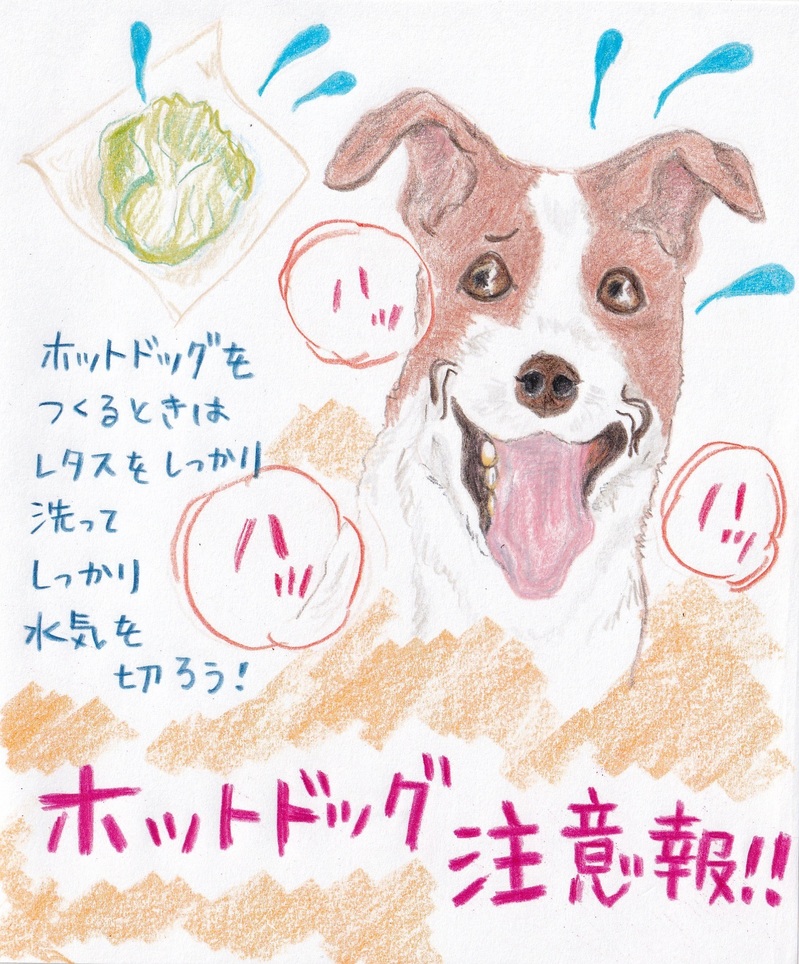 ハッ
ホットドッグを
つくるときは
レタスをしっかり
洗って
しっかり
水気を
切ろう!
ハッ
ハッ
ホットドッグ
注意報!!